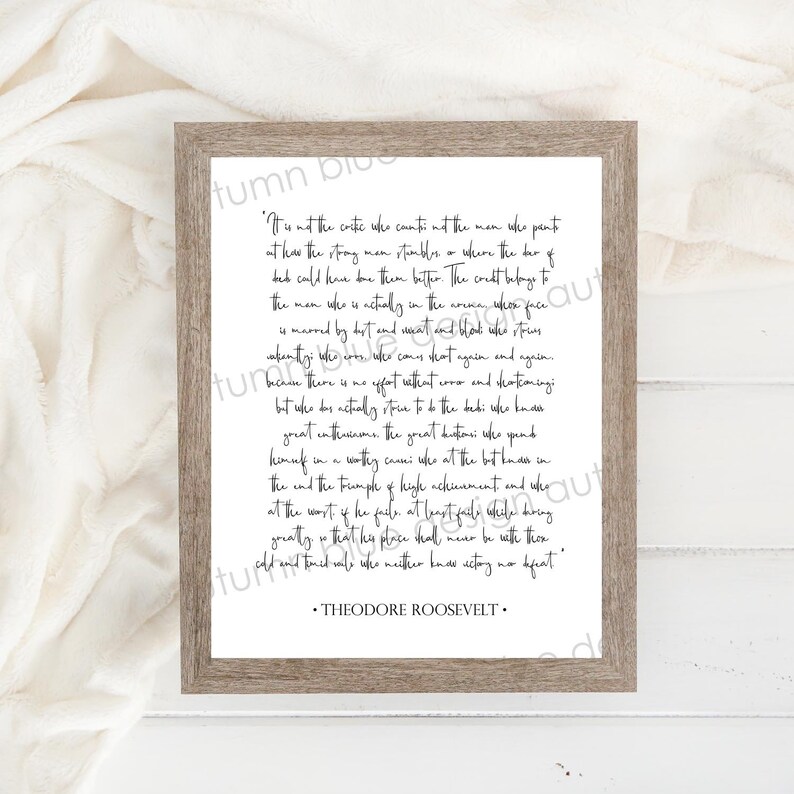 "It is not the critic who counts; not the man who points
out how the strong man stumbles, or where the doer of
deeds could have done them better. The credit belongs to
the man who is actually in the arena, whose face
is marred by dust and sweat and blood; who strives
valiantly; who errs, who comes short again and again,
because there is no effort without error and shortcoming;
but who does actually strive to do the deeds; who knows
great enthusiasms, the great devotions; who spends
himself in a worthy cause; who at the best knows in
the end the triumph of high achievement, and who
at the worst, if he fails, at least fails while daring
greatly, so that his place shall never be with those
cold and timid souls who neither know victory nor defeat."
• THEODORE ROOSEVELT •
tumn blue de
tumn blue design aut
tumn blue design aut
utumn blue design au